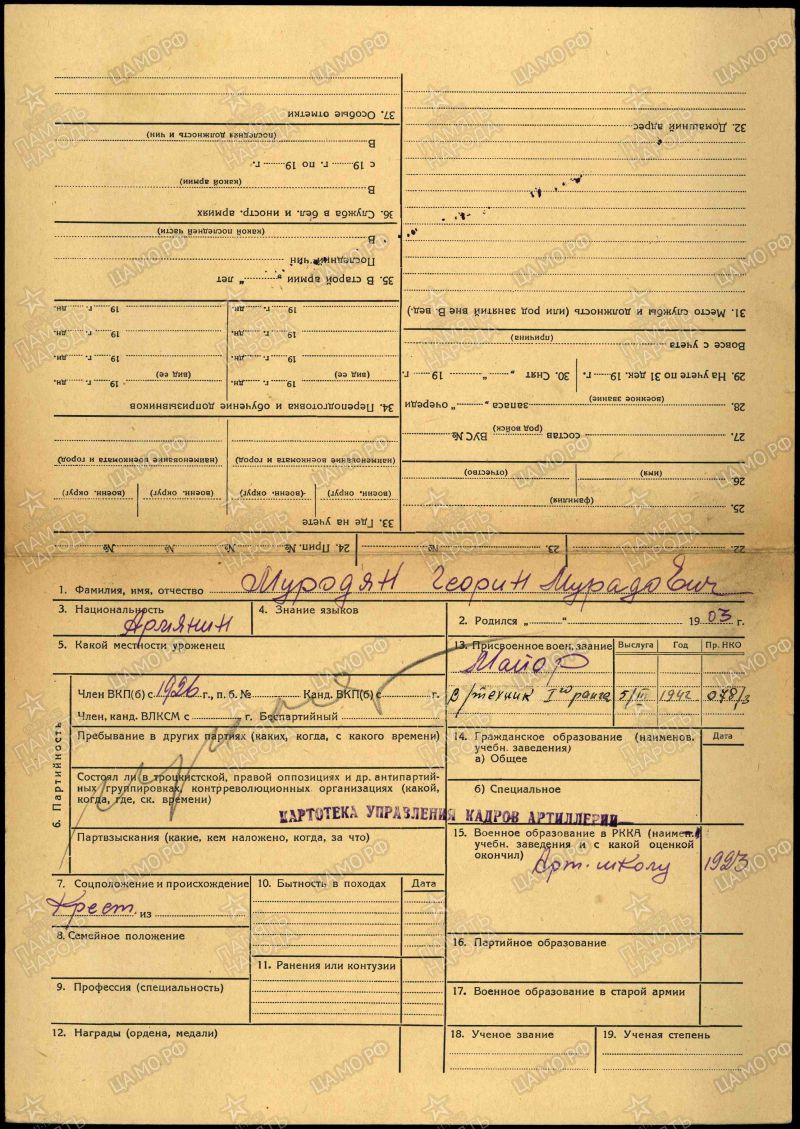 37. Особые отметки
В
(последняя должность и чин)
с 19 г. по 19 г.
В
(какой армии)
36. Служба в бел. и иностр. армиях
В
(какой последней части)
Последний чин
35. В старой армии „ “ лет
19 г. дн. 19 г. дн.
19 г. дн. 19 г. дн.
19 г. дн. 19 г. дн.
(вид ее) (вид ее)
19 г. дн. 19 г. дн.
34. Переподготовка и обучение допризывников
(наименование военкомата и город) (наименование военкомата и город)
(воен. округ) (воен. округ) (воен. округ) (воен. округ)
33. Где на учете
32. Домашний адрес
31. Место службы и должность (или род занятий вне В. вед.)
Вовсе с учета
(причина)
29. На учете по 31 дек. 19 г. 30. Снят „ “ 19 г.
28. запаса „ “ очереди
(военное звание)
27. состав ВУС №
(род войск)
26.
(имя) (отчество)
25.
(фамилия)
24. Прип. № № № 23. 22.
1. Фамилия, имя, отчество Мурадян Георги Мурадович
2. Родился „ “ 1903 г.
3. Национальность Армянин
4. Знание языков
5. Какой местности уроженец
6. Партийность
Член ВКП(б) с 1926 г., п. б. № Канд. ВКП(б) с г.
Член, канд. ВЛКСМ с г. Беспартийный
Пребывание в других партиях (каких, когда, с какого времени)
Состоял ли в троцкистской, правой оппозиции и др. антипартий-
ных группировках, контрреволюционных организациях (какой,
когда, где, ск. времени)
Партвзыскания (какие, кем наложено, когда, за что)
КАРТОТЕКА УПРАВЛЕНИЯ КАДРОВ АРТИЛЛЕРИИ
7. Соцположение и происхождение
Крест. из
8. Семейное положение
9. Профессия (специальность)
10. Бытность в походах Дата
11. Ранения или контузии
12. Награды (ордена, медали)
13. Присвоенное воен. звание Выслуга Год Пр. НКО
Майор
В/техник Iго ранга 5/III 1942 078/3
14. Гражданское образование (наименов. учебн. заведения) Дата
а) Общее
б) Специальное
15. Военное образование в РККА (наимен. учебн. заведения и с какой оценкой окончил)
Арт. школу 1923
16. Партийное образование
17. Военное образование в старой армии
18. Ученое звание
19. Ученая степень
ПАМЯТЬ НАРОДА
ЦАМО.РФ